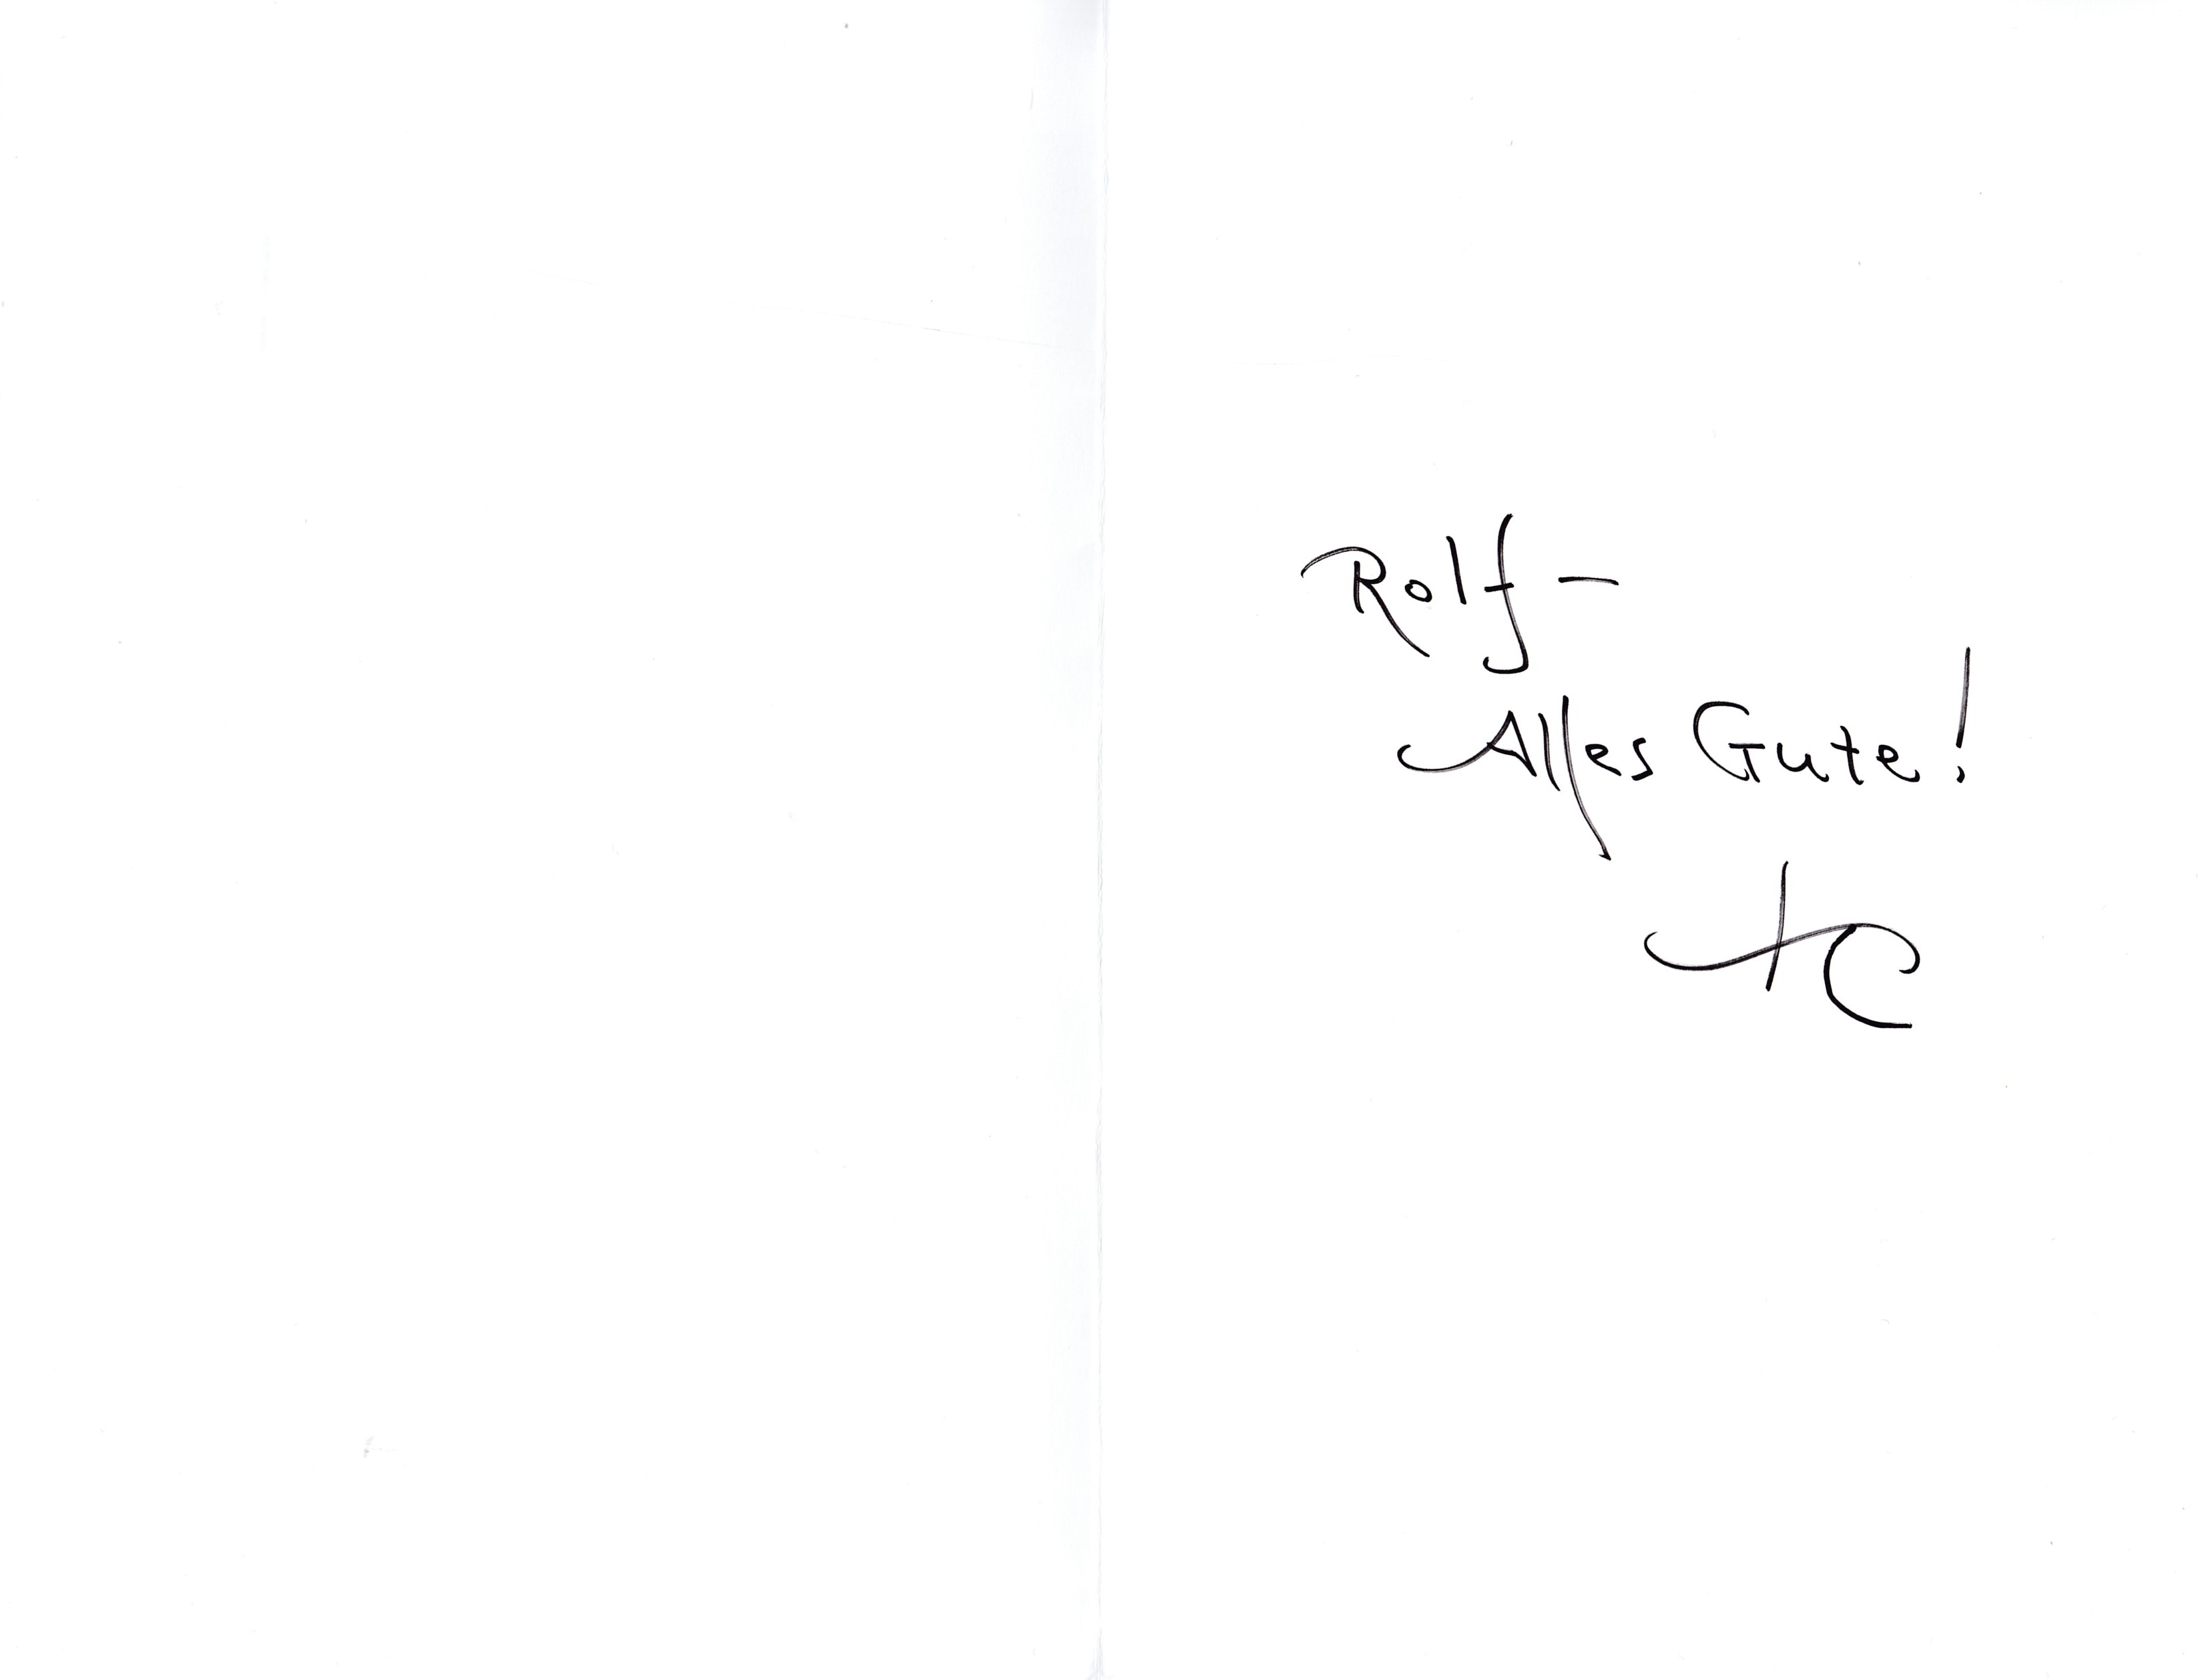 Rolf –
Alles Gute!